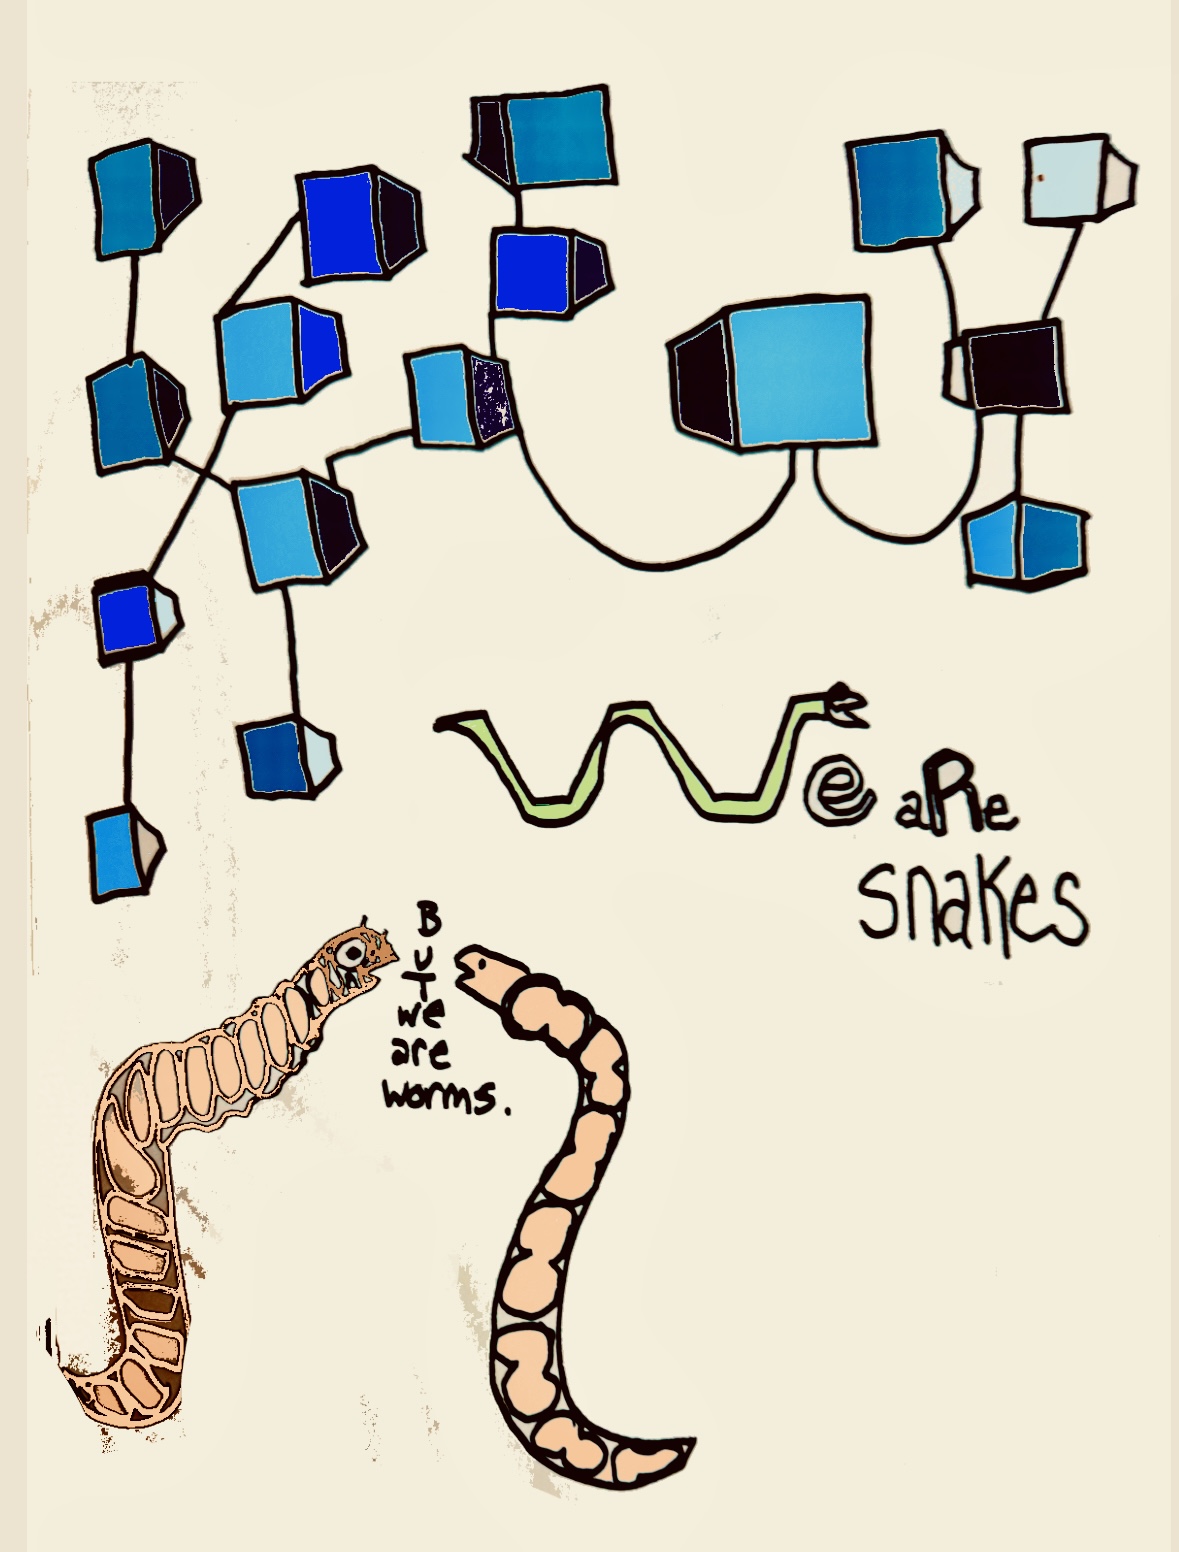 We aRe
snakes
B
U
T
we
are
worms.